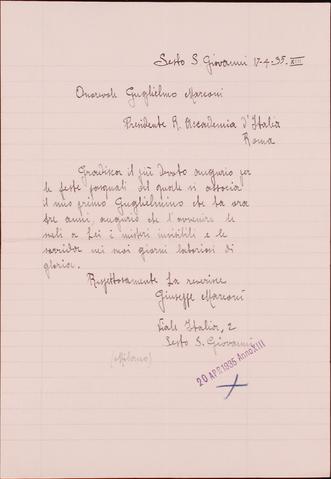 Sesto S. Giovanni 17-4-35. XIII
Onorevole Guglielmo Marconi
Presidente R. Accademia d'Italia
Roma
Gradisca il più devoto augurio per
le feste pasquali al quale si associa
il mio primo Guglielmino che ha ora
tre anni, augurio che l'avvenire le
sveli a Lei i misteri invisibili e le
sorrida nei suoi giorni laboriosi di
gloria.
Rispettosamente La riverisce
Giuseppe Marconi
Viale Italia, 2
Sesto S. Giovanni
(Milano)
20 APR 1935 Anno XIII